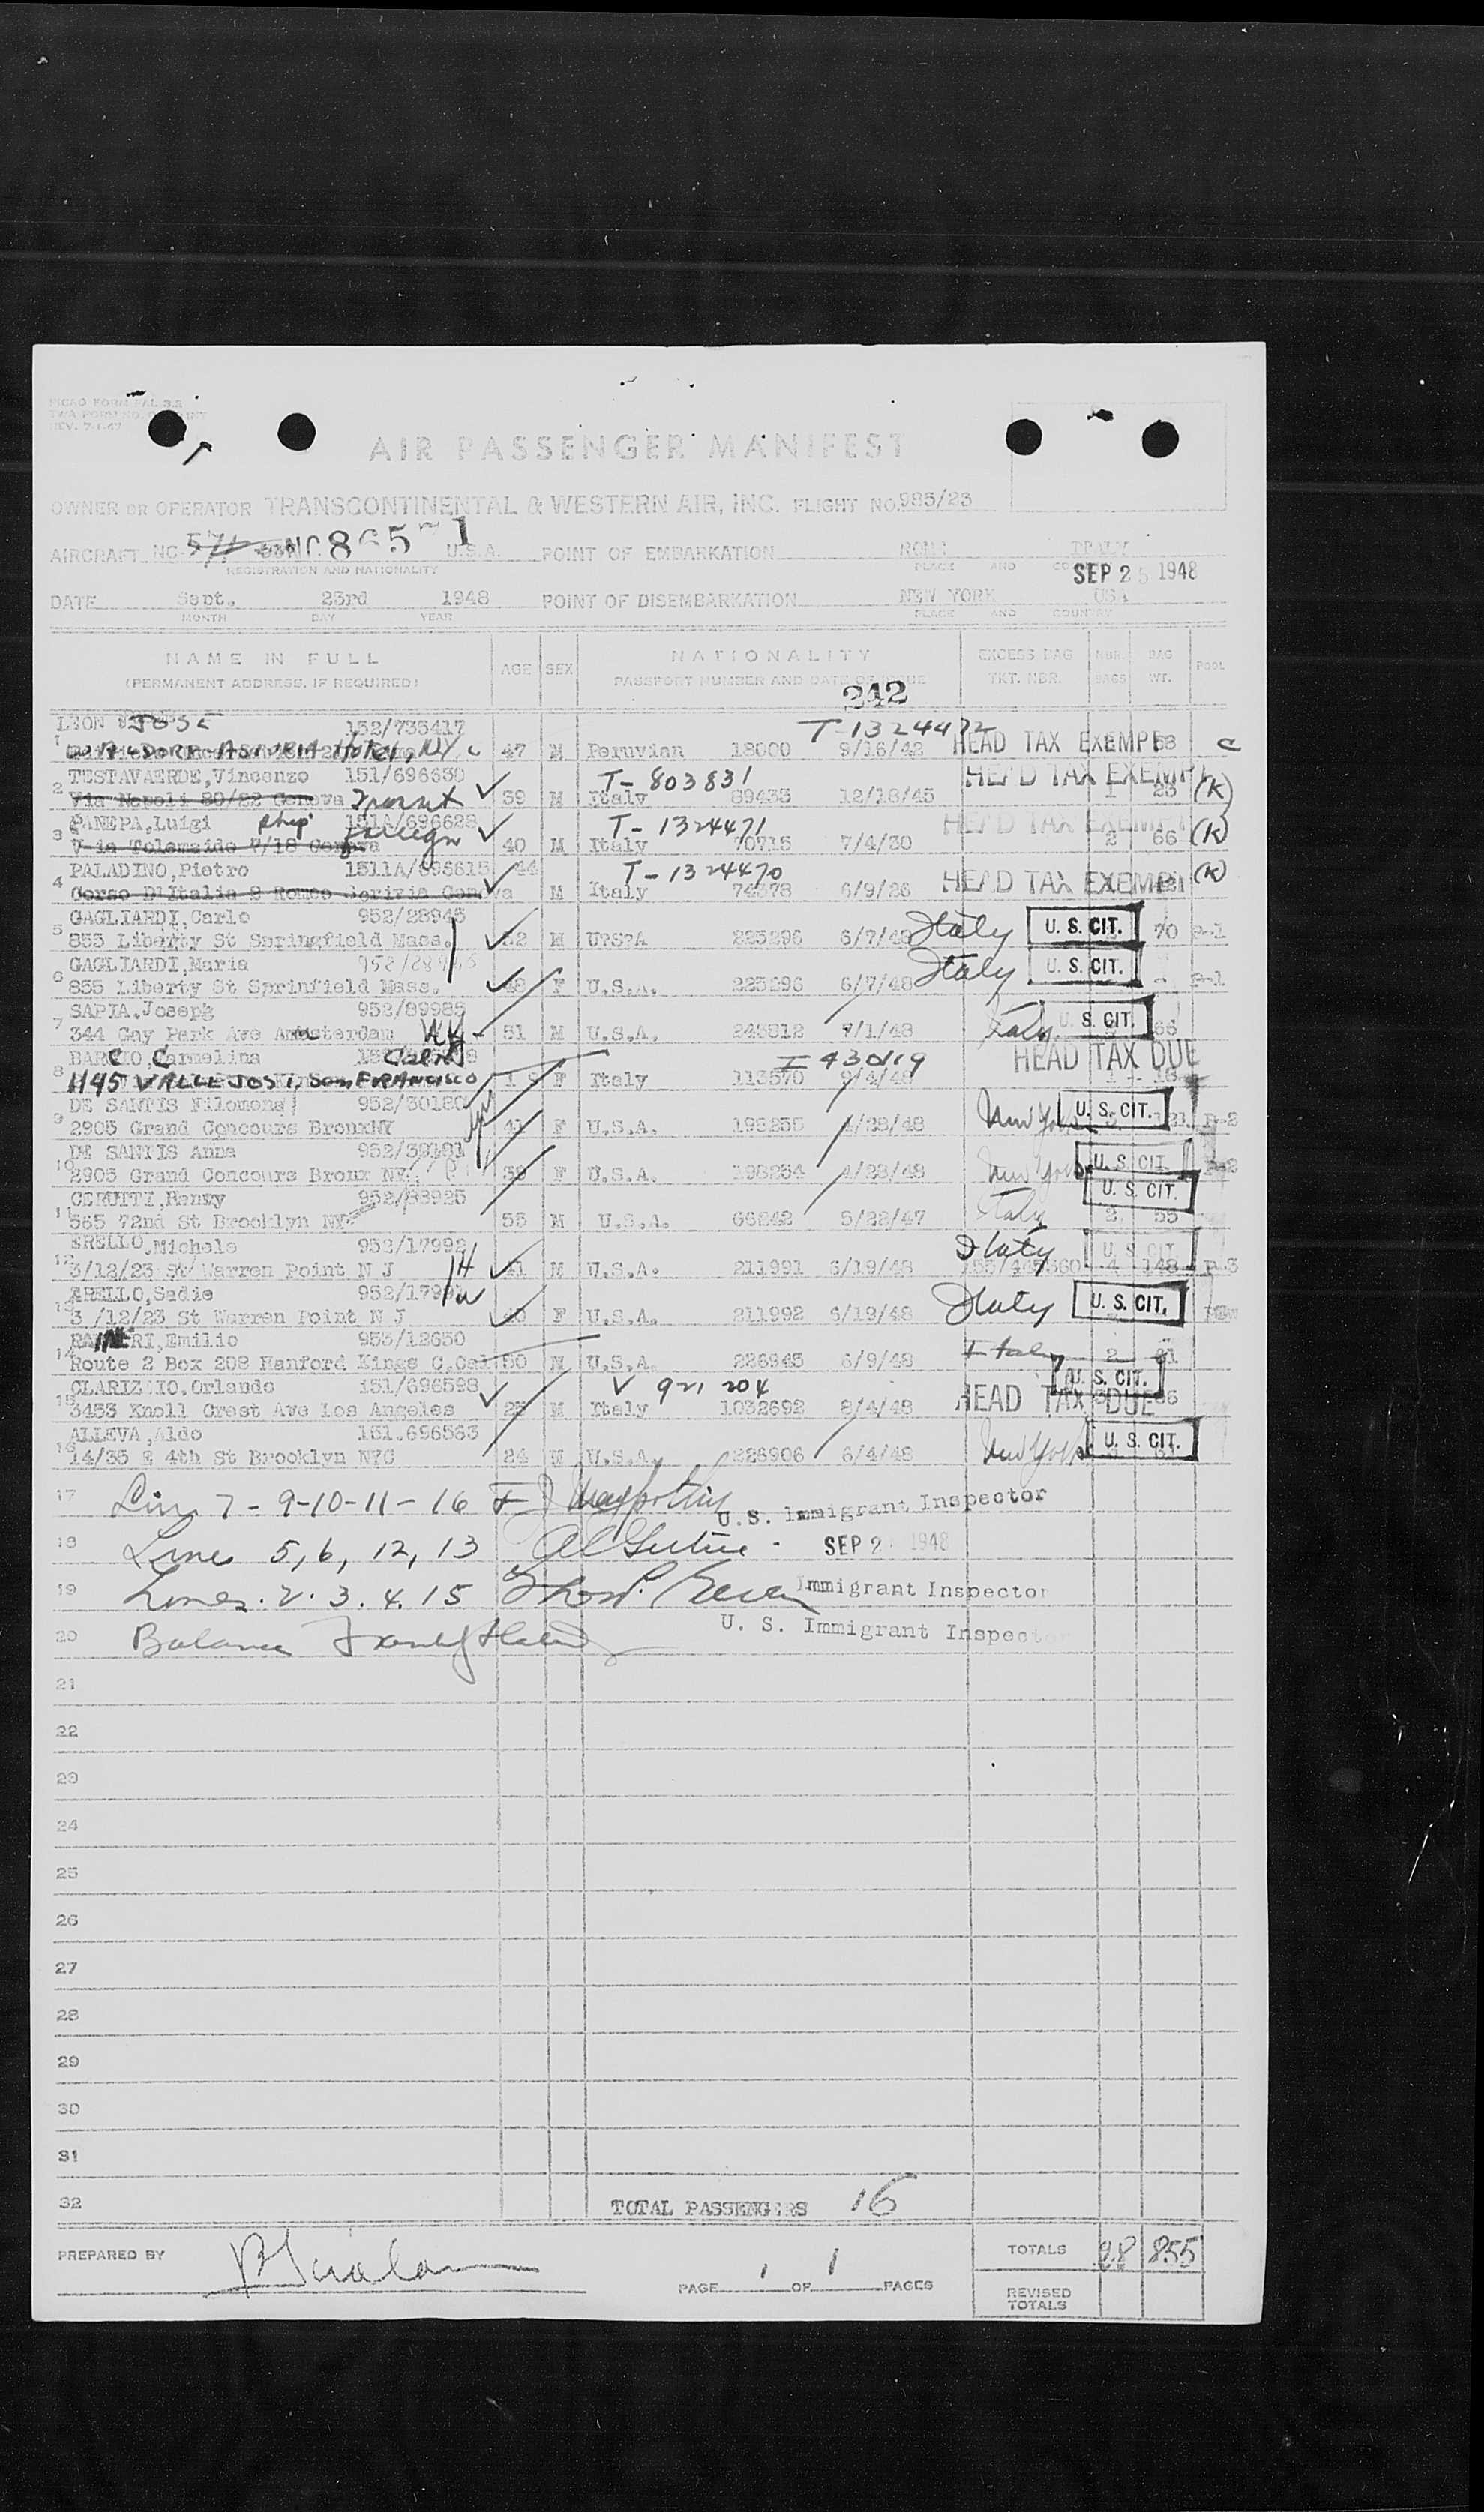 PICAO FORM PAL 3.2
REV. 7-1-47
AIR PASSENGER MANIFEST
OWNER OR OPERATOR TRANSCONTINENTAL & WESTERN AIR, INC. FLIGHT NO. 985/23
AIRCRAFT NC 571 NC 86571 U.S.A. POINT OF EMBARKATION ROME ITALY
REGISTRATION AND NATIONALITY PLACE AND COUNTRY
SEP 25 1948
DATE Sept. 23rd 1948 POINT OF DISEMBARKATION NEW YORK USA
MONTH DAY YEAR PLACE AND COUNTRY
NAME IN FULL AGE SEX NATIONALITY EXCESS BAG NBR. BAG POOL
(PERMANENT ADDRESS, IF REQUIRED) PASSPORT NUMBER AND DATE OF ISSUE TKT. NBR. BAGS WT.
242
LEON JOSE 152/735417 T-1324472
1 WALDORF-ASTORIA HOTEL, NY 47 M Peruvian 18000 9/16/42 HEAD TAX EXEMPT 58 C
TESTAVAERDE, Vincenzo 151/696630 T-803831 HEAD TAX EXEMPT
2 Via Napoli 80/22 Genova Transit 39 M Italy 89435 12/18/45 1 23 (K)
PANEPA, Luigi ship 151A/696628 T-1324471 HEAD TAX EXEMPT
3 V-ia Tolemaide 7/18 Genova foreign 40 M Italy 70715 7/4/30 2 66 (K)
PALADINO, Pietro 1511A/696615 44 T-1324470
4 Corso D'Italia 2 Romeo Jerivia Genova M Italy 74378 6/9/26 HEAD TAX EXEMPT (K)
GAGLIARDI, Carlo 952/28945
5 855 Liberty St Springfield Mass. 52 M U?S?A 225296 6/7/48 Italy U. S. CIT. 70 P-1
GAGLIARDI, Maria 952/28946
6 855 Liberty St Sprinfield Mass. 48 F U.S.A. 225296 6/7/48 Italy U. S. CIT. - P-1
SAPIA, Joseph 952/89985
7 344 Gay Park Ave Amsterdam NY 51 M U.S.A. 245812 7/1/48 Italy U. S. CIT. 66
BARCIO Carmelina Calif I 430119 HEAD TAX DUE
8 1145 VALLEJO ST, San FRANCISCO F Italy 113570 9/4/48
DE SANTIS Filomena 952/30180
9 2905 Grand Concours BronxNY 41 F U.S.A. 198255 4/23/48 New York U. S. CIT. 121 P-2
DE SANTIS Anna 952/30181
10 2905 Grand Concours Bronx NY 39 F U.S.A. 198254 4/23/48 New York U. S. CIT. P-2
CERUTTI, Henry 952/88925
11 565 72nd St Brooklyn NY 55 M U.S.A. 66242 5/22/47 Italy U. S. CIT. 2 55
ERELLO, Michele 952/17992
12 3/12/23 St Warren Point N J H 41 M U.S.A. 211991 6/19/48 Italy U. S. CIT. 4 148 P-3
ARELLO, Sadie 952/17991
13 3 /12/23 St Warren Point N J W 40 F U.S.A. 211992 6/19/48 Italy U. S. CIT.
RANIERI, Emilio 953/12650
14 Route 2 Box 208 Hanford Kings C. Cal 50 M U.S.A. 226945 6/9/48 Italy 2 21
U. S. CIT.
CLARIZIO, Orlando 151/696598 V 921 204
15 3453 Knoll Crest Ave Los Angeles 25 M Italy 1032692 8/4/48 HEAD TAX DUE
ALLEVA, Aldo 151.696563
16 14/35 E 4th St Brooklyn NYC 24 M U.S.A. 226906 6/4/48 New York U. S. CIT.
17 Line 7 - 9-10-11-16
U. S. Immigrant Inspector
18 Line 5, 6, 12, 13 SEP 2 1948
19 Lines. 2. 3. 4. 15 Immigrant Inspector
20 Balance U. S. Immigrant Inspector
21
22
23
24
25
26
27
28
29
30
31
32 TOTAL PASSENGERS 16
PREPARED BY TOTALS 28 855
PAGE 1 OF 1 PAGES
REVISED TOTALS